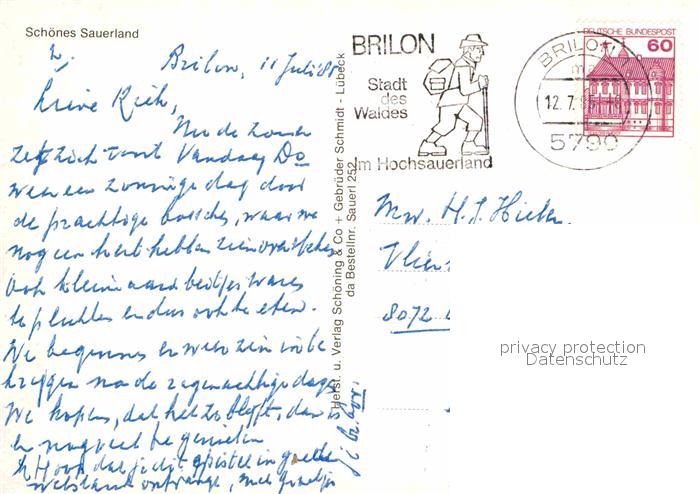 Schönes Sauerland
Brilon, 11 Juli 85
Nu de zomer
zet zich voort Vandaag Do
weer een zonnige dag door
de prachtige bosschen, waar we
nog een hert hebben zien oversteken
Ook kleine aardbeitjes waren
te plukken en dus ook te eten.
We beginnen er weer zin in te
krijgen na de regenachtige dagen
We hopen, dat het zo blijft, dan is
er nog veel te genieten
Hoop dat je dit epistel in goede
welstand ontvangt, met groetjes
Herst. u. Verlag Schöning & Co + Gebrüder Schmidt - Lübeck
da Bestellnr. Sauerl 252
BRILON
Stadt
des
Waldes
im Hochsauerland
BRILON
12.7.85
5790
DEUTSCHE BUNDESPOST
60
Mw. H.J.
8072
privacy protection
Datenschutz